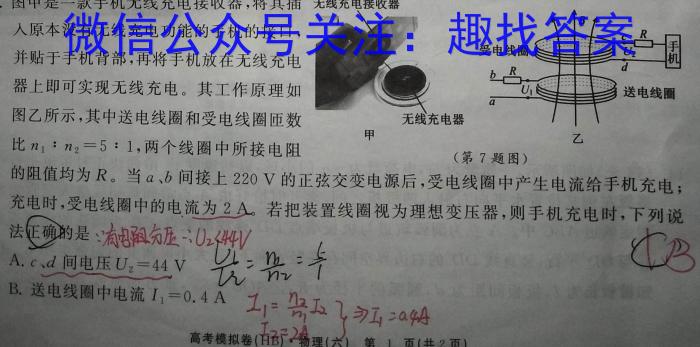 图甲是一款手机无线充电接收器，将其插
无线充电接收器
微信公众号关注：趣找答案
并贴于手机背部，再将手机放在无线充电
器上即可实现无线充电。其工作原理如
图乙所示，其中送电线圈和受电线圈匝数
比 n₁：n₂=5：1，两个线圈中所接电阻
受电线圈
c
R
手机
d
b R
U₁
a
送电线圈
无线充电器
甲
乙
(第 7 题图)
的阻值均为 R。当 a、b 间接上 220 V 的正弦交变电源后，受电线圈中产生电流给手机充电；
充电时，受电线圈中的电流为 2 A。若把装置线圈视为理想变压器，则手机充电时，下列说
法正确的是
∴U₂<44V
A. c、d 间电压 U₂=44 V
B. 送电线圈中电流 I₁=0.4 A
I₁=n₂/n₁ I₂
I₂=2A
⇒I₁=0.4A
B
高考模拟卷(HB) 物理(六) 第 1 页(共 2 页)